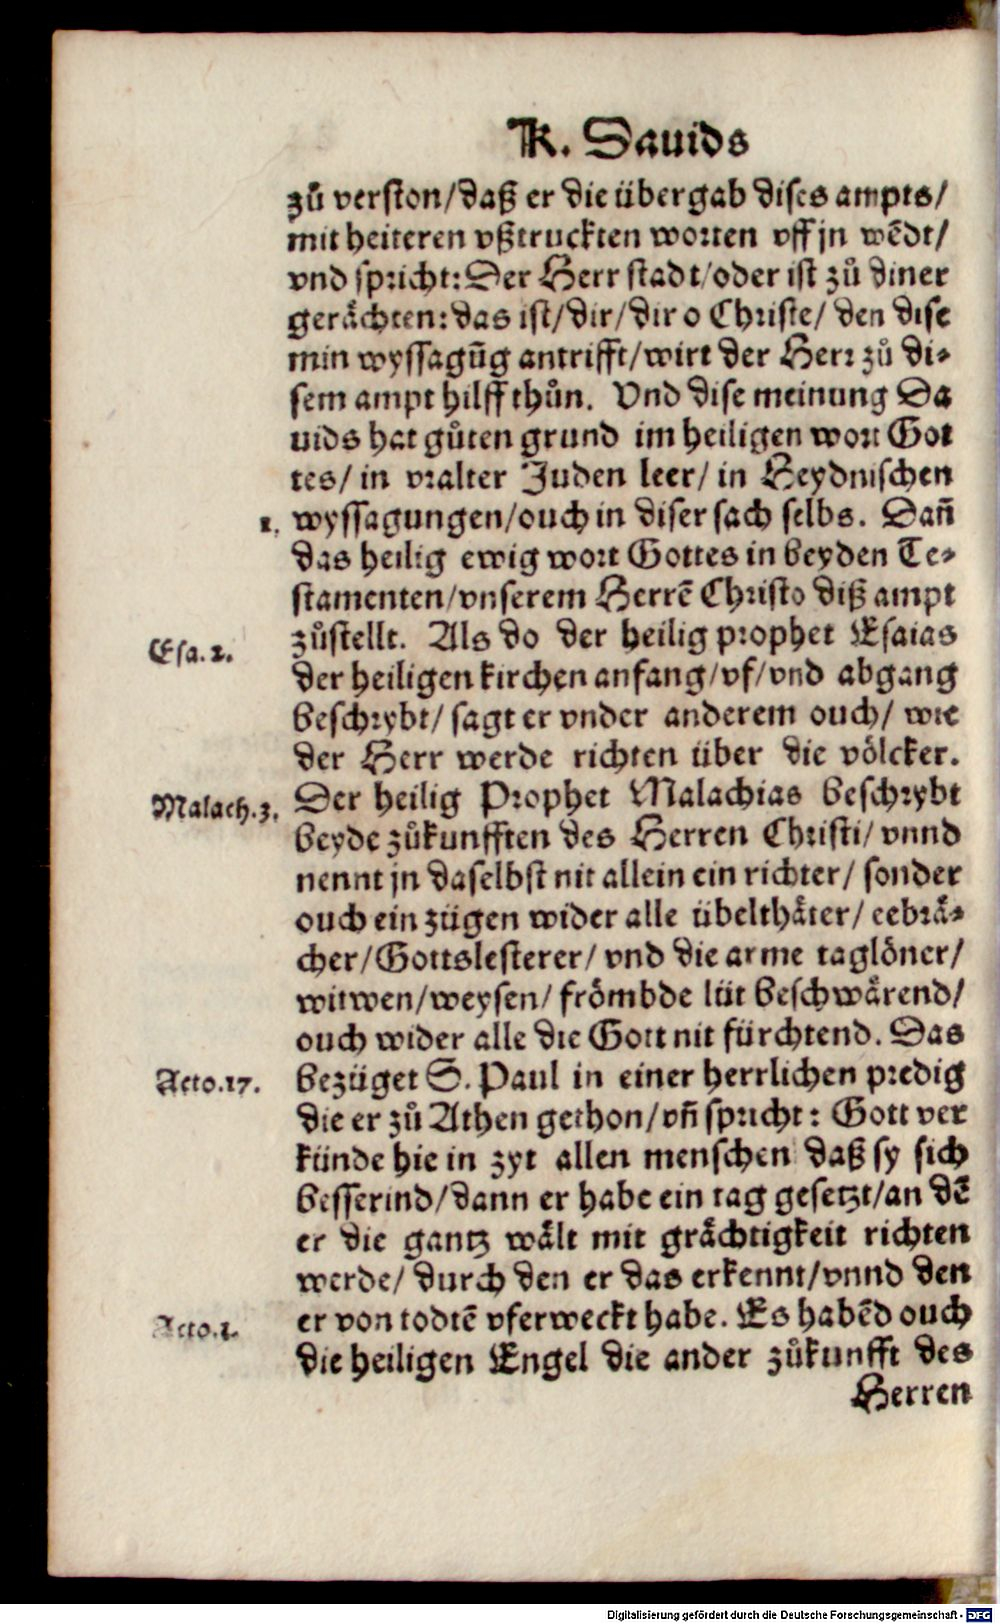 K. Dauids
zů verston/daß er die übergab dises ampts/
mit heiteren vßtruckten worten vff jn wẽdt/
vnd spricht: Der Herr stadt/oder ist zů diner
gerächten: das ist/dir/dir o Christe/ den dise
min wyssagũg antrifft/wirt der Herr zů di-
sem ampt hilff thůn. Vnd dise meinung Da
uids hat gůten grund im heiligen wort Got
tes/ in vralter Juden leer/ in Heydnischen
1. wyssagungen/ouch in diser sach selbs. Dañ
das heilig ewig wort Gottes in beyden Te-
stamenten/vnserem Herrẽ Christo diß ampt
Esa. 2. zůstellt. Als do der heilig prophet Esaias
der heiligen kirchen anfang/vf/vnd abgang
beschrybt/ sagt er vnder anderem ouch/ wie
der Herr werde richten über die völcker.
Malach.3. Der heilig Prophet Malachias beschrybt
beyde zůkunfften des Herren Christi/ vnnd
nennt jn daselbst nit allein ein richter/ sonder
ouch ein zügen wider alle übelthäter/ eebrä-
cher/Gottslesterer/ vnd die arme taglöner/
witwen/weysen/ frömbde lüt beschwärend/
ouch wider alle die Gott nit fürchtend. Das
Acto.17. bezüget S. Paul in einer herrlichen predig
die er zů Athen gethon/vñ spricht: Gott ver
künde hie in zyt allen menschen daß sy sich
besserind/dann er habe ein tag gesetzt/an dẽ
er die gantz wält mit grächtigkeit richten
werde/ durch den er das erkennt/vnnd den
er von todtẽ vferweckt habe. Es habẽd ouch
Acto.1. die heiligen Engel die ander zůkunfft des
Herren
Digitalisierung gefördert durch die Deutsche Forschungsgemeinschaft - DFG